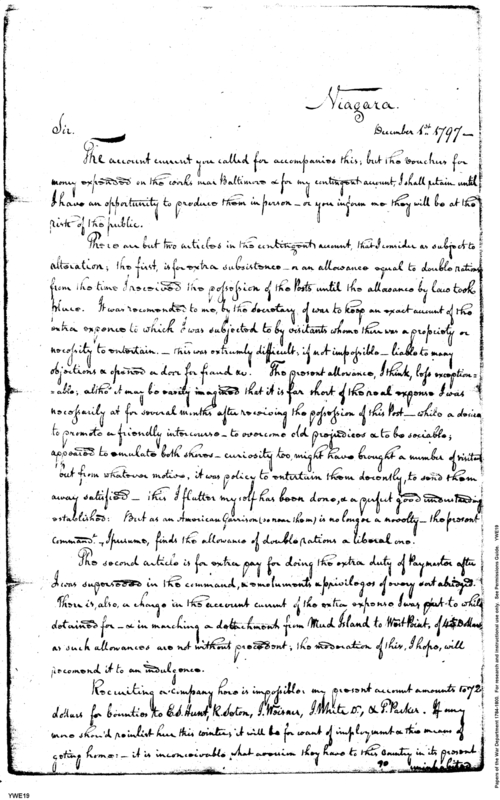 Niagara.
Sir.
December 1st. 1797—
The account current you called for accompanies this; but the vouchers for
money expended on the works near Baltimore & for my contingent account, I shall retain until
I have an opportunity to produce them in person — or you inform me they will be at the
risk of the public.
There are but two articles in the contingent account, that I consider as subject to
alteration; the first, is for extra subsistence — an allowance equal to double rations
from the time I received the possession of the Posts until the allowance by law took
place. It was recommended to me, by the Secretary of war to keep an exact account of the
extra expence to which I was subjected to by visitants whome there was a propriety or
necessity to entertain. — this was extremely difficult, if not impossible — liable to many
objections & opened a door for fraud &c. The present allowance, I think, less exception=
=able; altho' it may be easily imagined that it is far short of the real expense I was
necessarily at for several months after receiving the possession of this Post — while a desire
to promote a friendly intercourse — to overcome old prejudices & to be sociable;
appeared to emulate both shores — curiosity too, might have brought a number of visitants
but from whatever motive, it was policy to entertain them decently, to send them
away satisfied — this I flatter myself has been done, & a perfect good understanding
established: But as an American Garrison (so near them) is no longer a novelty — the present
Command.t, I presume, finds the allowance of double rations a liberal one.
The second article is for extra pay for doing the extra duty of Paymaster after
I was superseded in the command, & emoluments & privileges of every sort
There is, also, a charge in the account current of the extra expense I was put to while
detained for — & in marching a detachment from Mud Island to West Point, of 45 Dollars
as such allowances are not without precedent; the moderation of this, I hope, will
recomend it to an indulgence.
Recruiting a company here is impossible; my present account amounts to 72
dollars for bounties to E.d Hunt, R. Soton, J. White & P. Parker. If any
more shou'd reinlist here this winter, it will be for want of imployment & the means of
geting home: — it is inconceivable what aversion they have to this Country in its present
uninhabited
YWE19
Papers of the War Department 1784-1800. For research and instructional use only. See Permissions Guide. YWE19